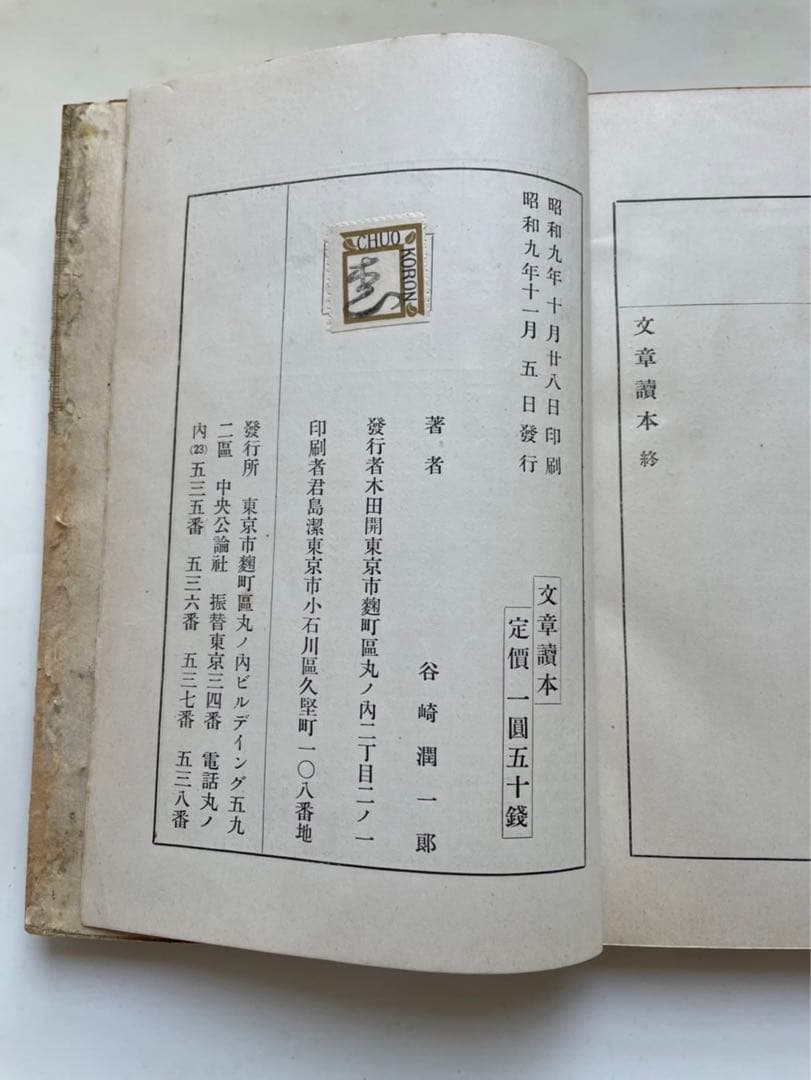 文章讀本 終
昭和九年十月廿八日印刷
昭和九年十一月五日發行
文章讀本
定價一圓五十錢
著者 谷崎潤一郎
發行者木田開東京市麴町區丸ノ內二丁目二ノ一
印刷者君島潔東京市小石川區久堅町一〇八番地
CHUO
KORON
發行所 東京市麴町區丸ノ內ビルデイング五九
二區 中央公論社 振替東京三四番 電話丸ノ
內(23)五三五番 五三六番 五三七番 五三八番